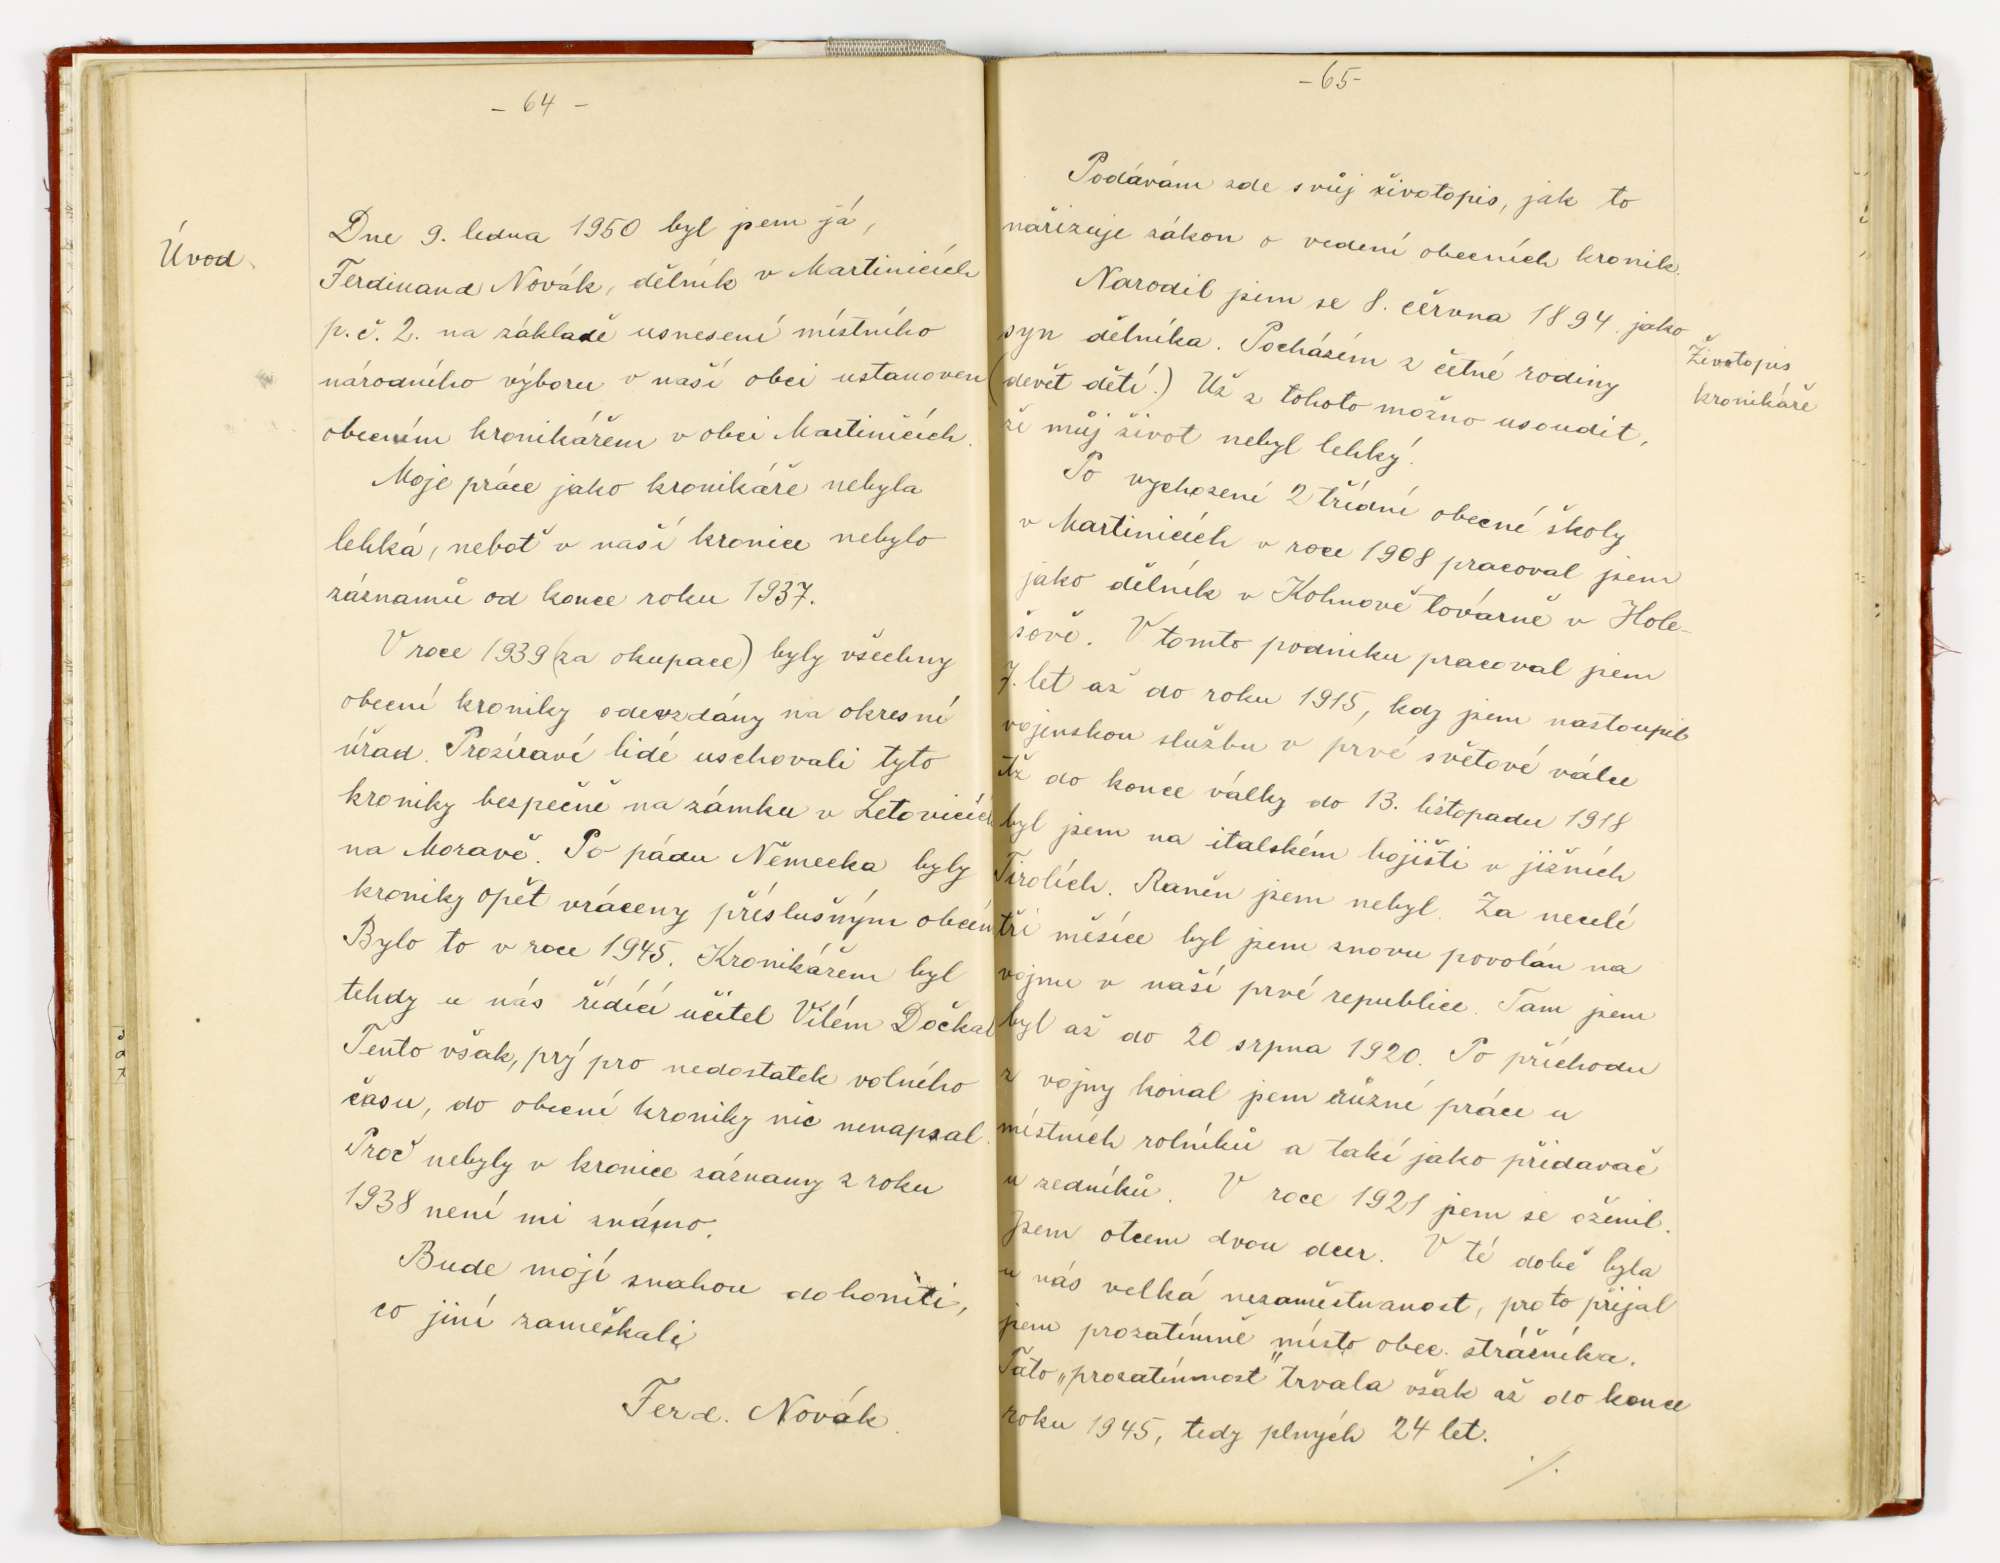 - 64 -
Úvod.
Dne 9. ledna 1950 byl jsem já,
Ferdinand Novák, dělník v Martinicích
p. č. 2. na základě usnesení místního
národního výboru v naší obci ustanoven
obecním kronikářem v obci Martinicích.
Moje práce jako kronikáře nebyla
lehká, neboť v naší kronice nebylo
záznamů od konce roku 1937.
V roce 1939 (za okupace) byly všechny
obecní kroniky odevzdány na okresní
úřad. Prozíraví lidé uschovali tyto
kroniky bezpečně na zámku v Letovicích
na Moravě. Po pádu Německa byly
kroniky opět vráceny příslušným obcím
Bylo to v roce 1945. Kronikářem byl
tehdy u nás řídící učitel Vilém Dočkal
Tento však, prý pro nedostatek volného
času, do obecní kroniky nic nenapsal.
Proč nebyly v kronice záznamy z roku
1938 není mi známo.
Bude mojí snahou dohoniti,
co jiní zameškali
Ferd. Novák.
- 65 -
Podávám zde svůj životopis, jak to
nařizuje zákon o vedení obecních kronik.
Narodil jsem se 8. června 1894. jako
syn dělníka. Pocházím z četné rodiny
(devět dětí.) Už z tohoto možno usoudit,
že můj život nebyl lehký!
Životopis
kronikáře
Po vychození 2 třídní obecné školy
v Martinicích v roce 1908 pracoval jsem
jako dělník v Kohnově továrně v Hole-
šově. V tomto podniku pracoval jsem
7. let až do roku 1915, kdy jsem nastoupil
vojenskou službu v prvé světové válce
Až do konce války do 13. listopadu 1918
byl jsem na italském bojišti v jižních
Tirolích. Raněn jsem nebyl. Za necelé
tři měsíce byl jsem znovu povolán na
vojnu v naší prvé republice. Tam jsem
byl až do 20 srpna 1920. Po příchodu
z vojny konal jsem různé práce u
místních rolníků a také jako přidavač
u zedníků. V roce 1921 jsem se oženil.
Jsem otcem dvou dcer. V té době byla
u nás velká nezaměstnanost, proto přijal
jsem prozatímně místo obec. strážníka.
Tato „prozatímnost" trvala však až do konce
roku 1945, tedy plných 24 let.
./.